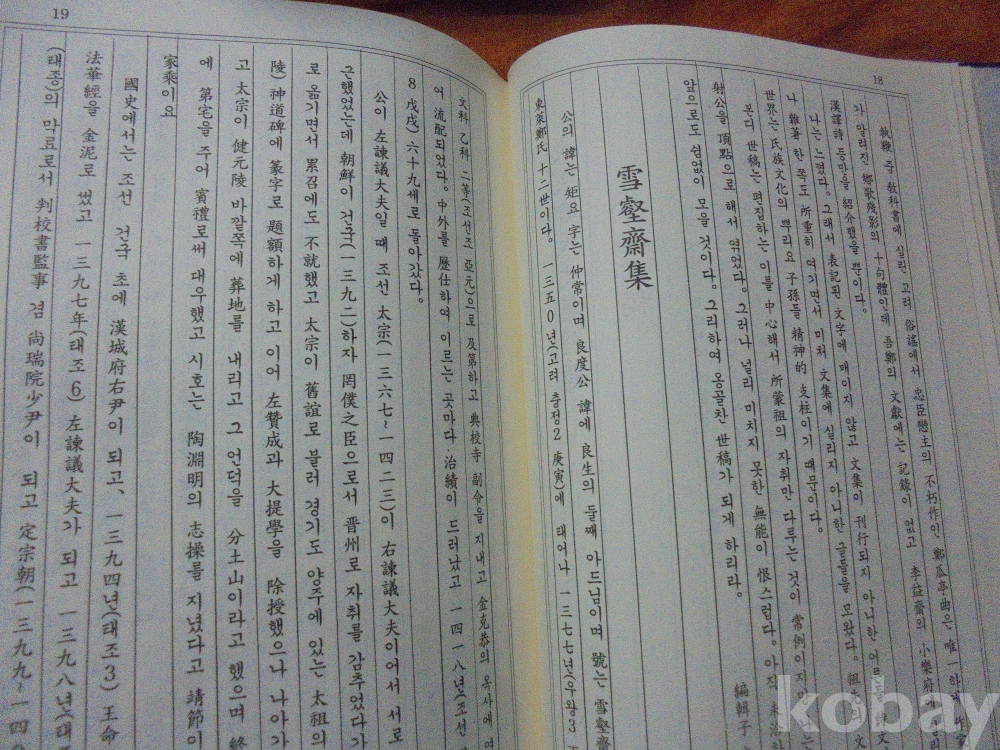 18
執鞭 중 敎科書에 실린 고려 俗謠에서 忠臣戀主의 不朽作인 鄭瓜亭曲은 唯一하게 作
가 알려진 鄕歌殘影의 十句體인데 吾鄭의 文獻에는 記錄이 없고 李益齋의 小樂府에
漢譯詩 등만을 紹介했을 뿐이다.
나는 느꼈다. 그래서 表記된 文字에 매이지 않고 文集이 刊行되지 아니한 어른들 詩文
나 雜著 한 쪽도 所重히 여기면서 미처 文集에 실리지 아니한 글들을 모왔다. 祖先
世界는 民族文化의 뿌리요 子孫들 精神的 支柱이기 때문이다.
본디 世稿는 편집하는 이를 中心해서 所蒙祖의 자취만 다루는 것이 常例이지만
射公을 頂點으로 해서 엮었다. 그러나 널리 미치지 못한 無能이 恨스럽다. 아직
앞으로도 쉼없이 모을 것이다. 그리하여 옹골찬 世稿가 되게 하리라.
編輯子
雪壑齋集
公의 諱는 矩요 字는 仲常이며 良度公 諱에 良生의 둘째 아드님이며 號는 雪壑齋
東萊鄭氏 十二世이다. 一三五0년(고려 충정2 庚寅)에 태어나 一三七七년(우왕3
19
文科 乙科 二等(조선조 亞元)으로 及第하고 典校寺 副令을 지내고 金克恭의 옥사에 연
여 流配되었다. 中外를 歷仕하여 이르는 곳마다 治績이 드러났고 一四一八년(조선
8 戊戌) 六十九세로 돌아갔다.
公이 左諫議大夫일 때 조선 太宗(一三六七~一四二三)이 右諫議大夫이어서 서로
근했었는데 朝鮮이 건국(一三九二)하자 罔僕之臣으로서 晋州로 자취를 감추었다가
로 옮기면서 累召에도 不就했고 太宗이 舊誼로 불러 경기도 양주에 있는 太祖의
陵) 神道碑에 篆字로 題額하게 하고 이어 左贊成과 大提學을 除授했으나 나아가
고 太宗이 健元陵 바깥쪽에 葬地를 내리고 그 언덕을 分土山이라고 했으며 終
에 第宅을 주어 賓禮로써 대우했고 시호는 陶淵明의 志操를 지녔다고 靖節이
家乘이요
國史에서는 조선 건국 초에 漢城府右尹이 되고、 一三九四년(태조3) 王命
法華經을 金泥로 썼고 一三九七年(태조6) 左諫議大夫가 되고 一三九八년(태
(태종)의 막료로서 判校書監事 겸 尙瑞院少尹이 되고 定宗朝(一三九九~一四0
kobay